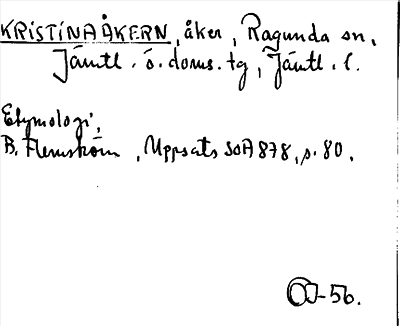 KRISTINAÅKERN, åker, Ragunda sn,
Jämtl. ö. doms. tg, Jämtl. l.
Etymologi,
B. Flemström, Uppsats SOA 878, s. 80.
OJ-56.